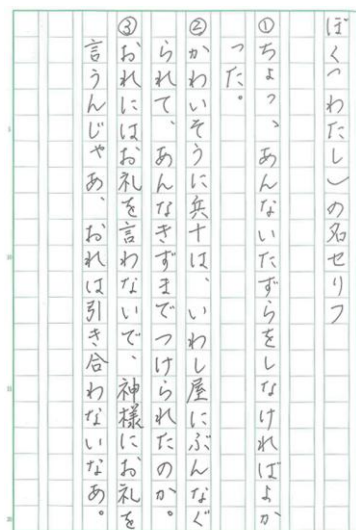 ぼく（わたし）の名セリフ
①ちょっ、あんないたずらをしなければよか
った。
②かわいそうに兵十は、いわし屋にぶんなぐ
られて、あんなきずまでつけられたのか。
③おれにはお礼を言わないで、神様にお礼を
言うんじゃあ、おれは引き合わないなあ。